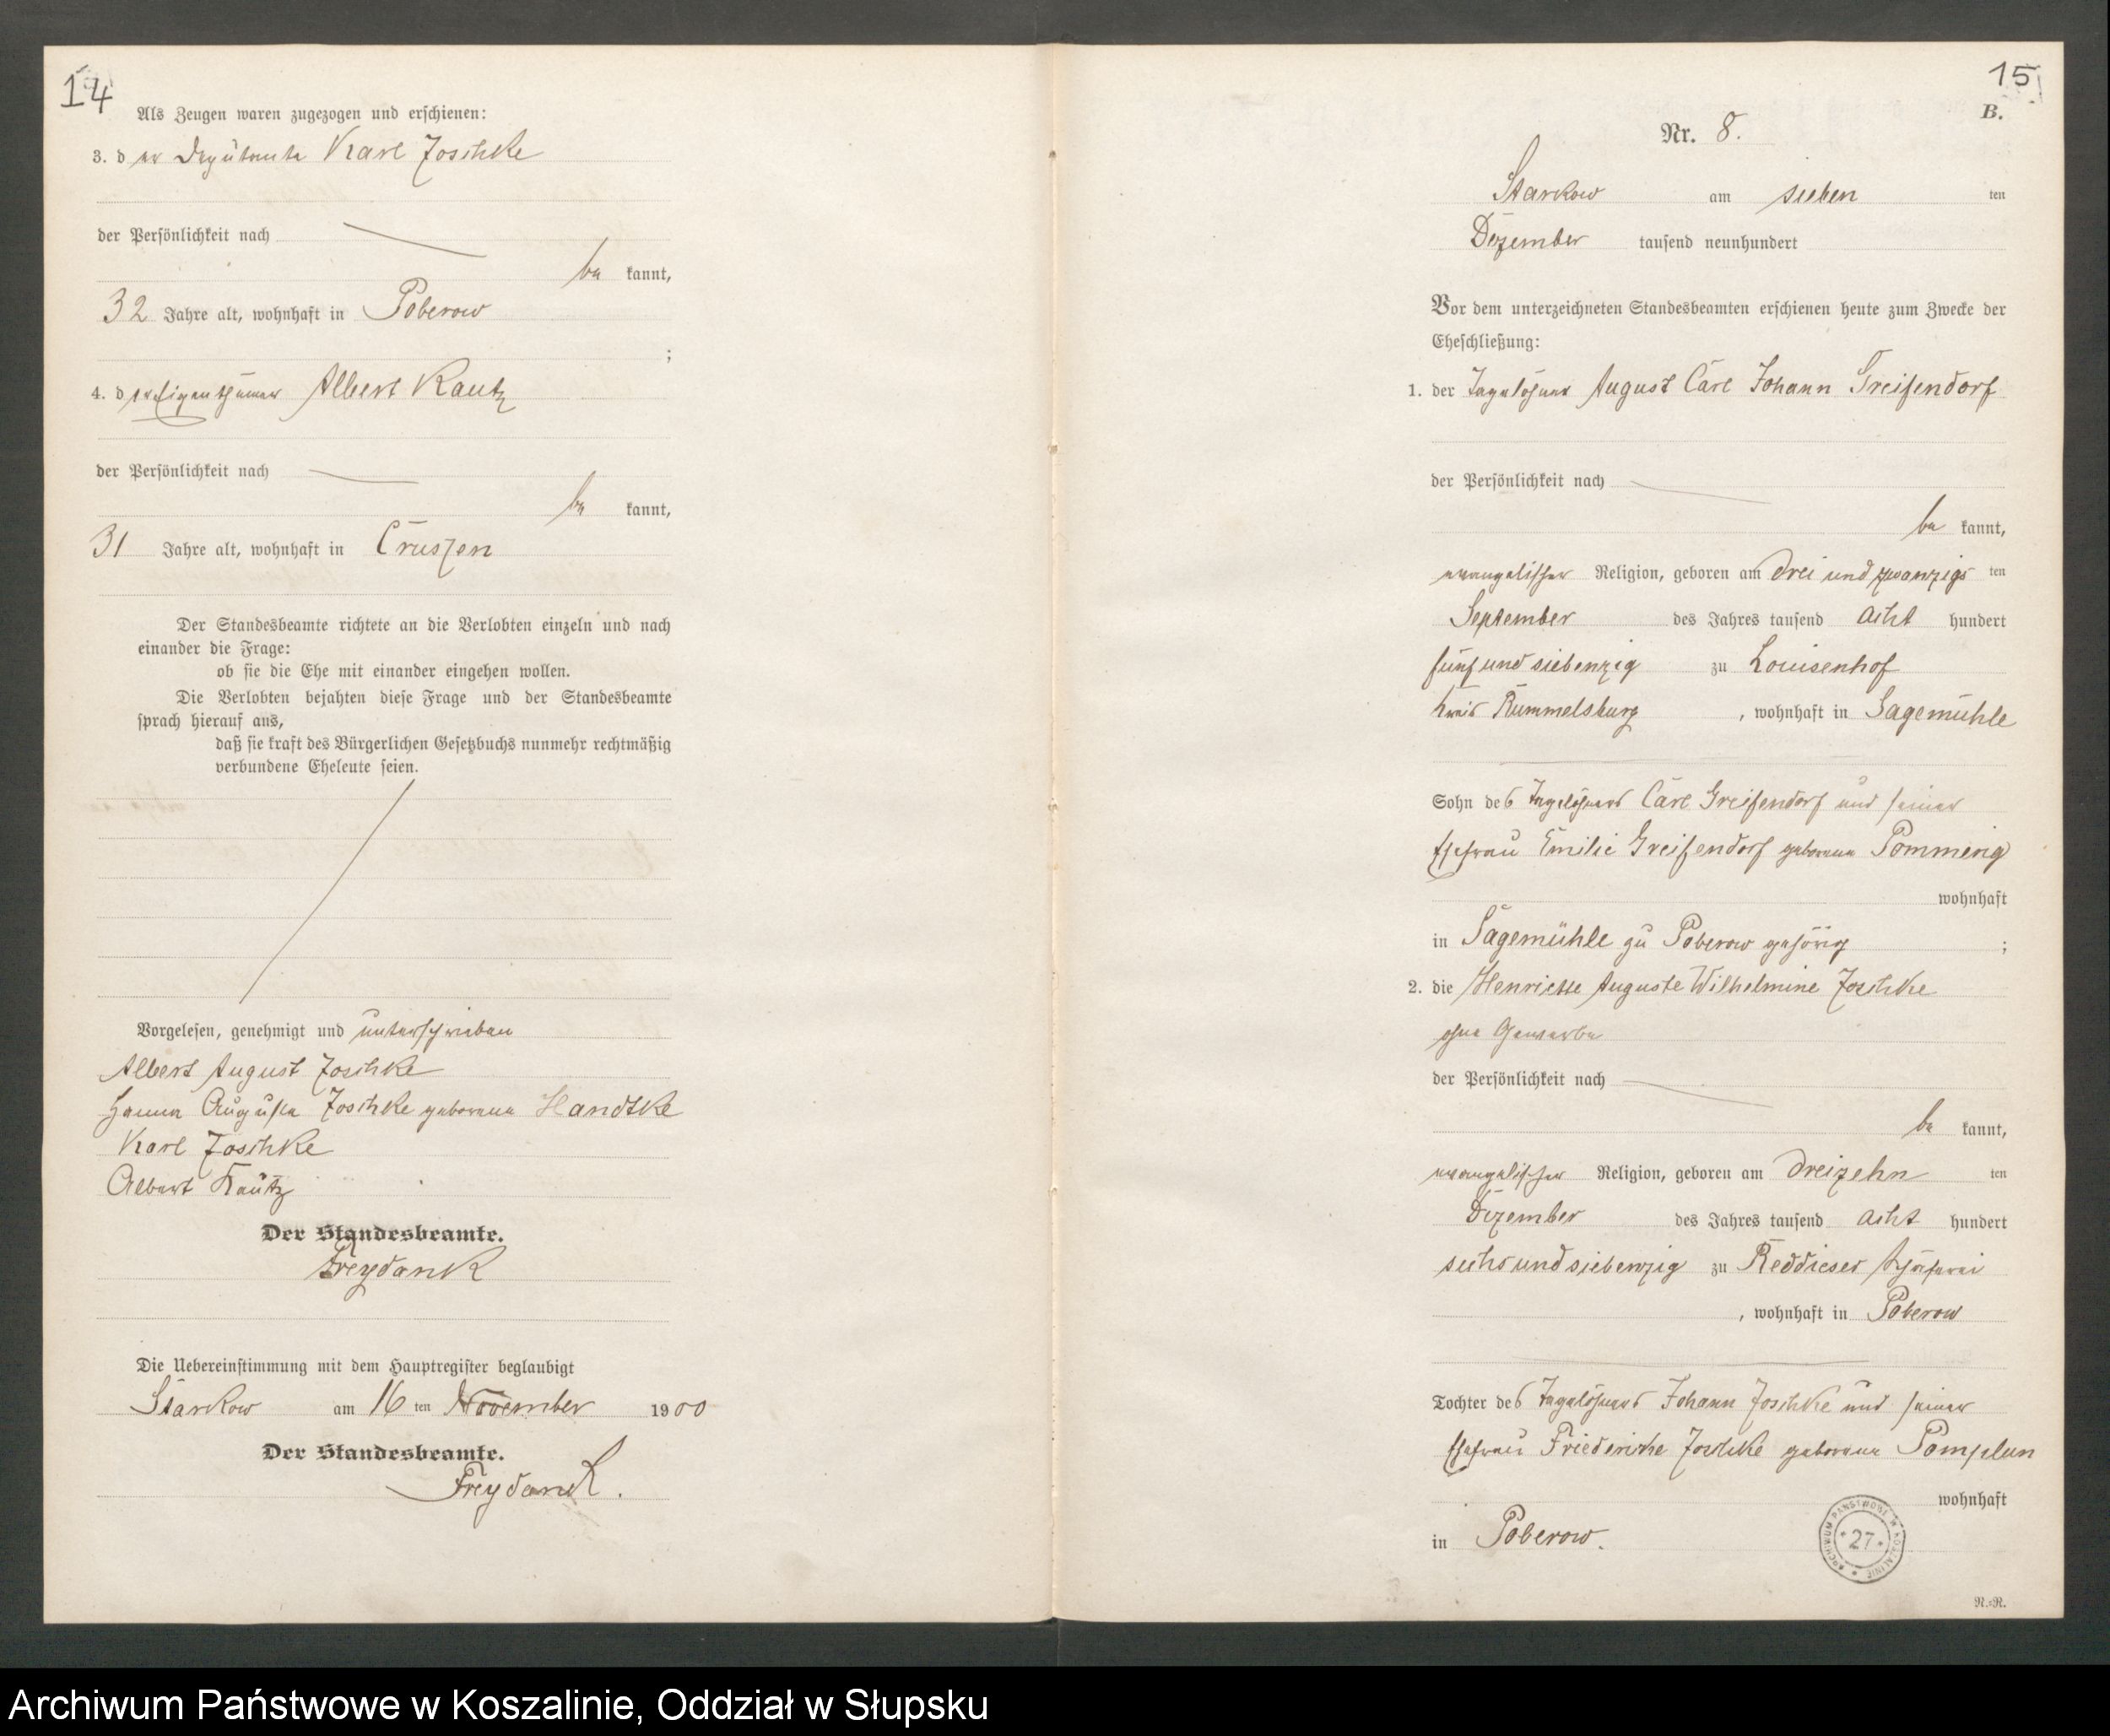 14
Als Zeugen waren zugezogen und erschienen:
3. der Deputante Karl Joschke
der Persönlichkeit nach
be kannt,
32 Jahre alt, wohnhaft in Poberow
;
4. der Eigenthümer Albert Kautz
der Persönlichkeit nach
be kannt,
31 Jahre alt, wohnhaft in Crussen
Der Standesbeamte richtete an die Verlobten einzeln und nach
einander die Frage:
ob sie die Ehe mit einander eingehen wollen.
Die Verlobten bejahten diese Frage und der Standesbeamte
sprach hierauf aus,
daß sie kraft des Bürgerlichen Gesetzbuchs nunmehr rechtmäßig
verbundene Eheleute seien.
Vorgelesen, genehmigt und unterschrieben
Albert August Joschke
Hanna Auguste Joschke geborene Handtke
Karl Joschke
Albert Kautz
Der Standesbeamte.
Freydank
Die Uebereinstimmung mit dem Hauptregister beglaubigt
Starkow am 16 ten November 1900
Der Standesbeamte.
Freydank.
15
B.
Nr. 8.
Starkow am sieben ten
Dezember tausend neunhundert
Vor dem unterzeichneten Standesbeamten erschienen heute zum Zwecke der
Eheschließung:
1. der Tagelöhner August Carl Johann Greifendorf
der Persönlichkeit nach
be kannt,
evangelischer Religion, geboren am drei und zwanzigs ten
September des Jahres tausend acht hundert
fünf und siebenzig zu Louisenhof
Kreis Rummelsburg, wohnhaft in Sagemühle
Sohn des Tagelöhners Carl Greifendorf und seiner
Ehefrau Emilie Greifendorf geborene Pommerig
wohnhaft
in Sagemühle zu Poberow gehörig ;
2. die Henriette Auguste Wilhelmine Joschke
ohne Gewerbe
der Persönlichkeit nach
be kannt,
evangelischer Religion, geboren am dreizehn ten
Dezember des Jahres tausend acht hundert
sechs und siebenzig zu Reddieser Schäferei
, wohnhaft in Poberow
Tochter des Tagelöhners Johann Joschke und seiner
Ehefrau Friedericke Joschke geborene Pomplun
wohnhaft
in Poberow.
ARCHIWUM PAŃSTWOWE W KOSZALINIE
* 27 *
N.=R.
Archiwum Państwowe w Koszalinie, Oddział w Słupsku